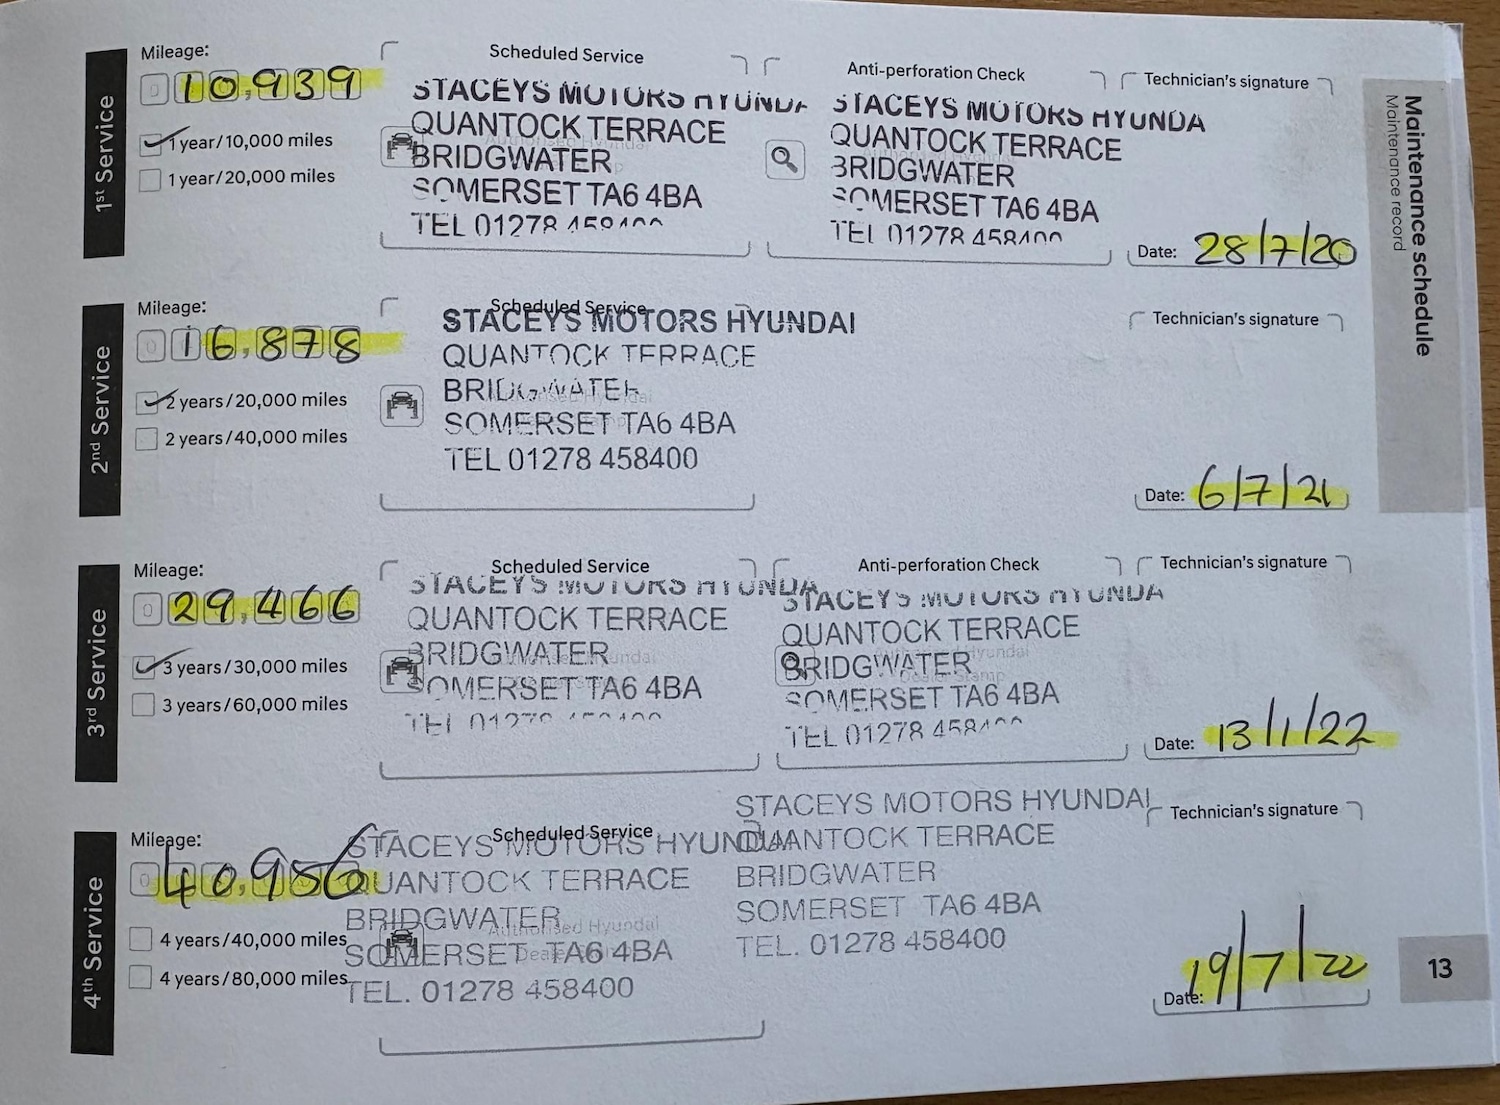 Maintenance schedule
Maintenance record
1st Service
Mileage:
0 10,939
1 year/10,000 miles
1 year/20,000 miles
Scheduled Service
STACEYS MOTORS HYUNDA
QUANTOCK TERRACE
BRIDGWATER
SOMERSET TA6 4BA
TEL 01278 458400
Anti-perforation Check
STACEYS MOTORS HYUNDA
QUANTOCK TERRACE
BRIDGWATER
SOMERSET TA6 4BA
TEL 01278 458400
Technician's signature
Date: 28/7/20
2nd Service
Mileage:
0 16,878
2 years/20,000 miles
2 years/40,000 miles
Scheduled Service
STACEYS MOTORS HYUNDAI
QUANTOCK TERRACE
BRIDGWATER
Authorised Hyundai
SOMERSET TA6 4BA
TEL 01278 458400
Technician's signature
Date: 6/7/21
3rd Service
Mileage:
0 29,466
3 years/30,000 miles
3 years/60,000 miles
Scheduled Service
STACEYS MOTORS HYUNDA
QUANTOCK TERRACE
BRIDGWATER
Authorised Hyundai
SOMERSET TA6 4BA
TEL 01278 458400
Anti-perforation Check
STACEYS MOTORS HYUNDA
QUANTOCK TERRACE
BRIDGWATER
Authorised Hyundai
Dealer Stamp
SOMERSET TA6 4BA
TEL 01278 458400
Technician's signature
Date: 13/1/22
4th Service
Mileage:
0 40,956
4 years/40,000 miles
4 years/80,000 miles
Scheduled Service
STACEYS MOTORS HYUNDAI
QUANTOCK TERRACE
BRIDGWATER
Authorised Hyundai
SOMERSET TA6 4BA
TEL. 01278 458400
STACEYS MOTORS HYUNDAI
QUANTOCK TERRACE
BRIDGWATER
SOMERSET TA6 4BA
TEL. 01278 458400
Technician's signature
Date: 19/7/22
13